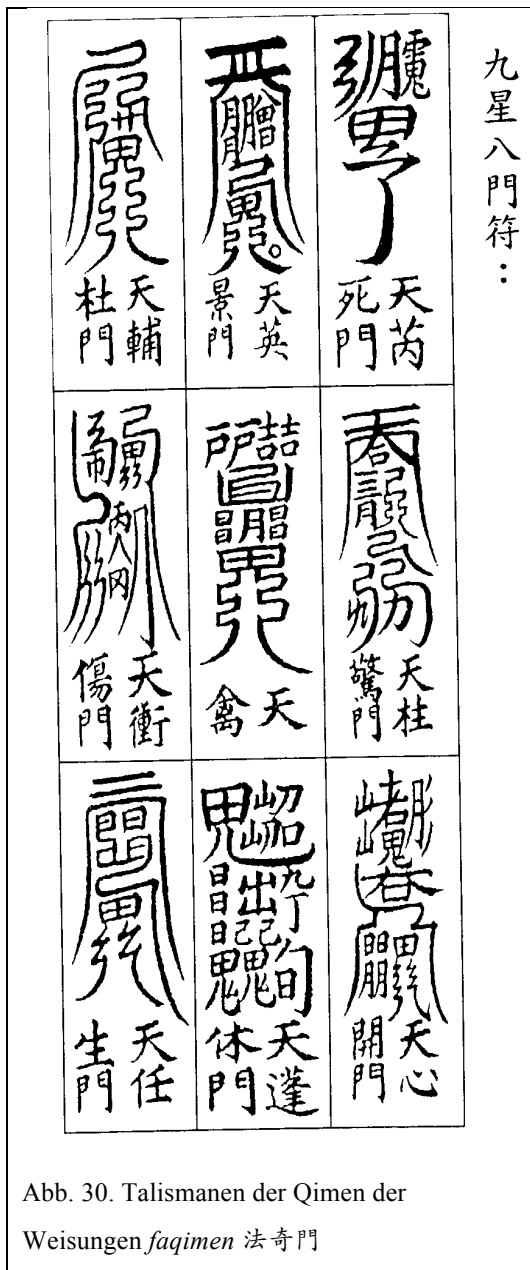 九星八門符：
天芮
死門
天英
景門
天輔
杜門
天柱
驚門
天禽
天衝
傷門
天心
開門
天蓬
休門
天任
生門
Abb. 30. Talismanen der Qimen der
Weisungen faqimen 法奇門